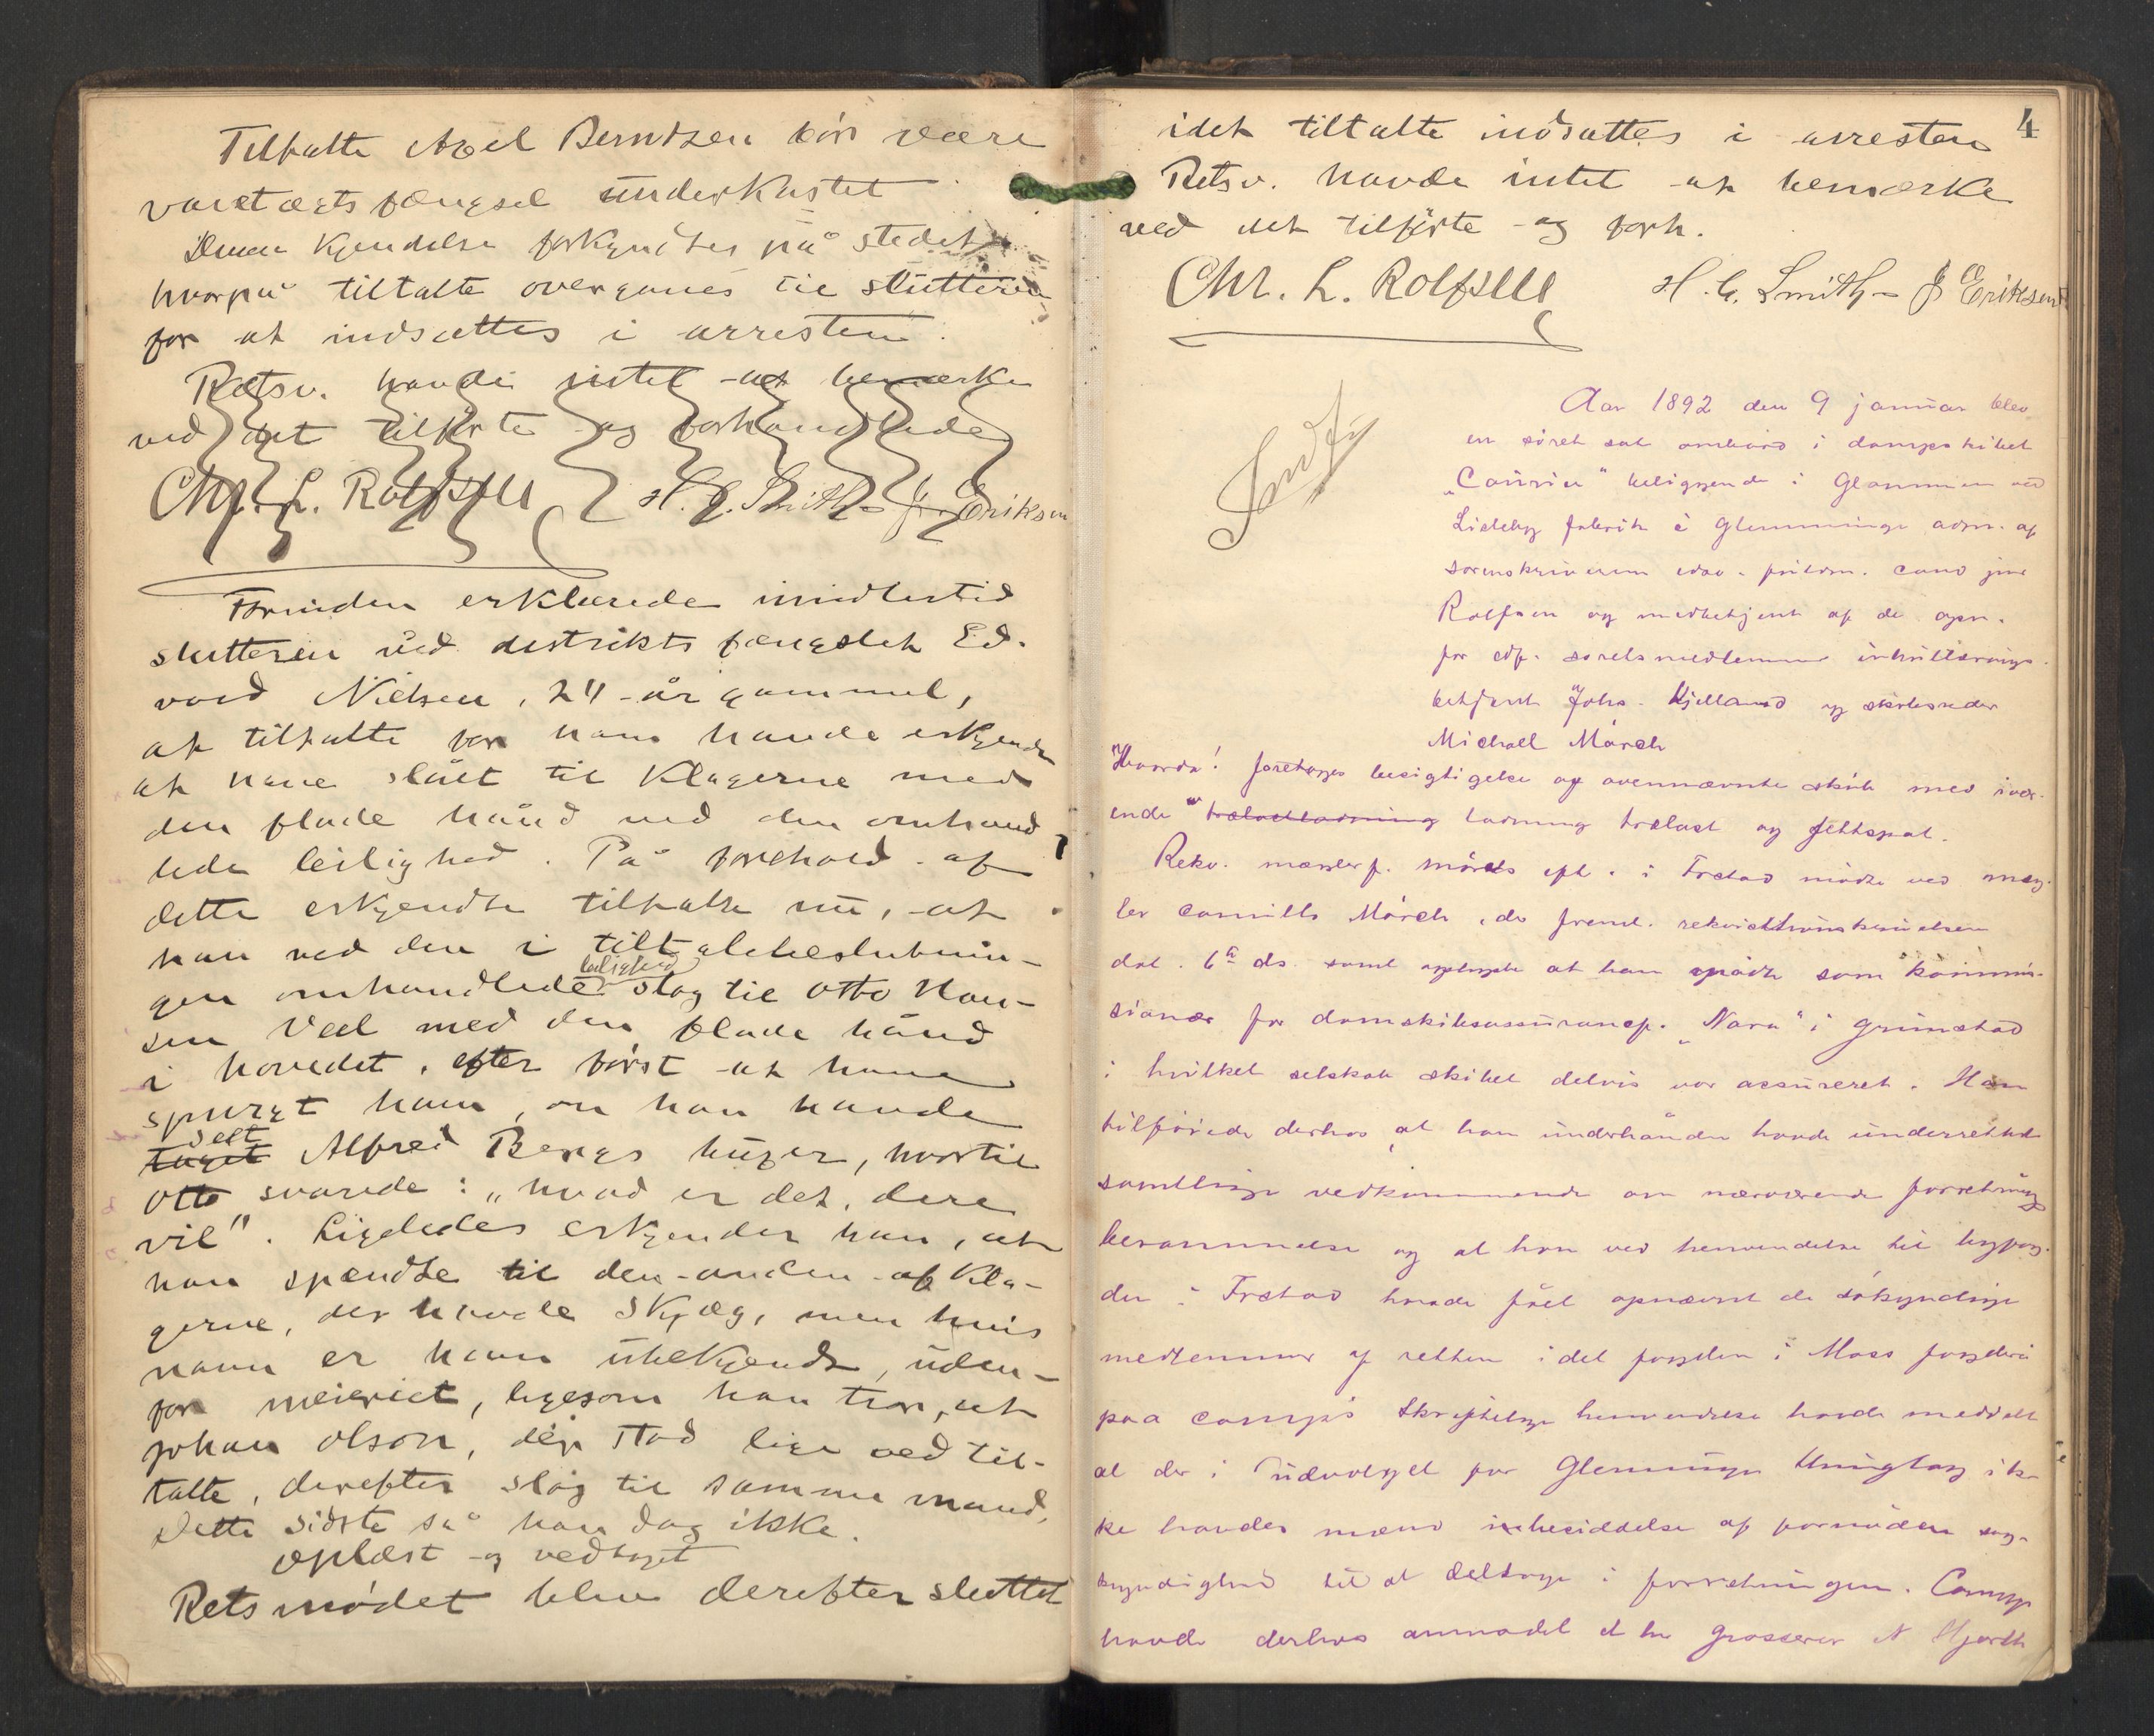 Tiltalte Axel Berntzen bör være
varetægtsfængsel underkastet
Denne Kjendelse forkyndtes på stedet
hvorpå tiltalte overgaves til slutteren
for at indsættes i arresten.
Retsv. havde intet at bemærke
ved det tilførte og forhandlede
Chr. L. Rolfsen H. G. Smith J Eriksen
Forinden erklærede imidlertid
slutteren ved distriktsfængslet Ed-
vard Nielsen, 24 år gammel,
at tiltalte for ham havde erkjendt
at have slået til Klagerne med
den flade hånd ved den omhand
lede leilighed. På forehold af
dette erkjendte tiltalte nu, at
han ved den i tiltalebeslutnin-
gen omhandlede leilighed slog til Otto Han-
sen Veel med den flade hånd
i hovedet, efter først at have
spurgt ham, om han havde
taget seet Alfred Bergs huger, hvortil
Otto svarede: „hvad er det, dere
vil". Ligeledes erkjender han, at
han spændte til den anden af Kla-
gerne, der havde Skjæg, men hvis
navn er ham ubekjendt, uden-
for meieriet, ligesom han tror, at
Johan Olson, der stod lige ved til-
talte, derefter slog til samme mand,
Dette sidste så han dog ikke.
Oplæst og vedtaget
Retsmødet blev derefter sluttet
4
idet tiltalte indsattes i arresten
Retsv. havde intet at bemærke
ved det tilførte og forh.
Chr. L. Rolfsen H. G. Smith J Eriksen
Aar 1892 den 9 januar blev
en söret sat ombord i dampskibet
„Courier" beliggende i Glommen ved
Lisleby fabrik i Glemminge adm. af
sorenskriverens edsv. fuldm. cand jur
Rolfsen og medbetjent af de opn.
for edf. söretsmedlemmer
betjent Johs. Kjelland og skibsreder
Michall Mörch
Hvorda! foretoges besigtigelse af ovennævnte skib med ivær-
ende trælastladning ladning trælast og feltspat.
Rekv. mæglerf. Mörchs eft. i Frstad mödte ved mæg-
ler Camillo Mörch, der freml. rekvisitionsskrivelsen
dat. 6te ds. samt oplyste at han mödte som kommis-
sionær for damskibsassurancef. „Nora" i Grimstad
i hvilket selskab skibet delvis var assureret. Han
tilföiede derhos at han underhånden havde underrettet
samtlige vedkommende om nærværende forretnings
berammelse og at han ved henvendelse til byfog-
den i Frstad havde fået opnævnt de sökyndige
medlemmer af retten idet fogden i Moss fogderi
paa comp's skriftlige henvendelse havde meddelt
at der i udvalget for Glemminge thinglag ik-
ke havdes mænd i besiddelse af fornöden sag-
kyndighed til at deltage i forretningen. Comp
havde derhos anmodet d hr grosserer N Hjorth